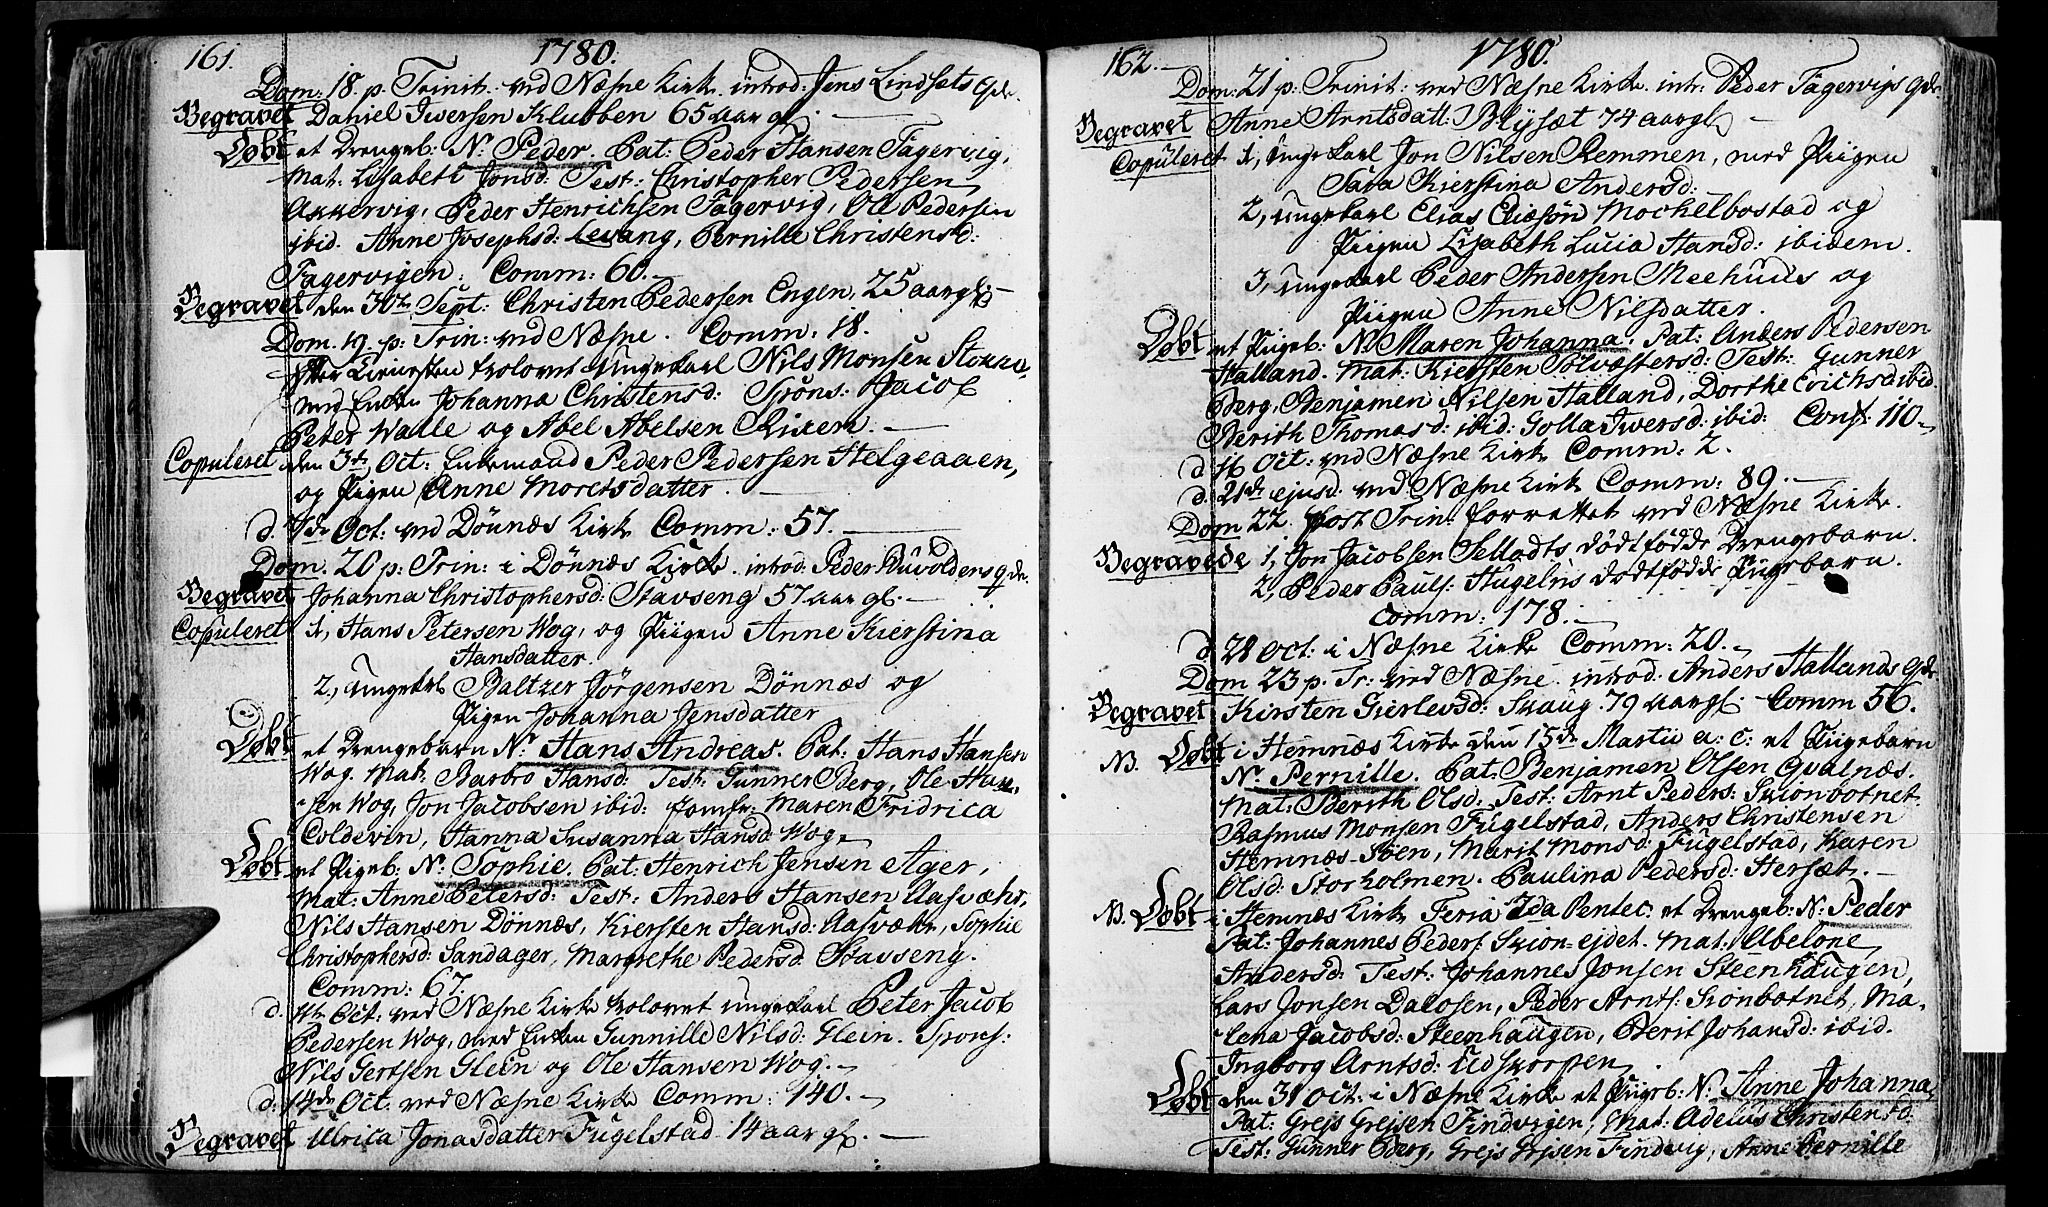 161.
1780.
Dom: 18. p. Trinit. ved Næsne Kirke. introd: Jens Lindsets qde.
Begravet Daniel Iwersen Klubben 65 aar gl. —
Døbt et Drengeb: N: Peder. Pat: Peder Hansen Fagervig,
Mat: Lisabeth Jonsd: Test: Christopher Pedersen
Akkervig, Peder Henrichsen Fagervig, Ole Pedersen
ibid. Anne Josephsd: Levang, Pernille Christensd:
Fagervigen. Comm: 60. —
Begravet den 30te Sept: Christen Pedersen Engen, 25 aar gl: —
Dom. 19. p: Trin: ved Næsne. Comm: 18.
efter trolovet Ungekarl Nils Monsen Stokka,
med Enken Johanna Christensd: Spons: Jacob
Peter Walle og Abel Abelsen Rixem. —
Copuleret den 3de Oct: Enkemand Peder Pedersen Helgeaaen,
og Pigen Anne Moretsdatter. —
d. 7de Oct: ved Dönnæs Kirke Comm: 57. —
Dom. 20 p: Trin: i Dönnæs Kirke. introd: Peder qde.
Begravet Johanna Christophersd: Stavseng 57 aar gl. —
Copuleret 1, Hans Petersen Wog, og Piigen Anne Kierstina
Hansdatter.
2, Ungekarl Baltzer Jörgensen Dönnæs og
Pigen Johanna Jensdatter
Døbt et Drengebarn N: Hans Andreas. Pat: Hans Hansen
Wog. Mat: Barbro Hansd: Test: Gunner Berg, Ole Han-
sen Wog, Jon Jacobsen ibid: Jomfr: Maren Fridrica
Coldevin, Hanna Susanna Hansd: Wog.
Døbt et Pigeb: N: Sophie. Pat: Henrich Jensen Ager,
Mat: Anne Petersd: Test: Anders Hansen Aasvæhr,
Nils Hansen Dönnæs, Kiersten Hansd: Aasvæhr, Sophie
Christophersd: Sandager, Margrethe Pedersd: Stavseng.
Comm: 67.
d. Oct: ved Næsne Kirke trolovet Ungekarl Peter Jacob
Pedersen Wog, med Enken Gunnille Nilsd: Glein. Spons:
Nils Gertsen Glein og Ole Hansen Wog. —
d: 14de Oct: ved Næsne Kirke Comm: 140. —
Begravet Ulrica Jonasdatter Fugelstad 14 aar gl. —
162. —
1780.
Dom: 21 p: Trinit: ved Næsne Kirke. intr: Peder Fagervigs qde.
Begravet Anne Arntsdatt: Blÿsæt 74 aar gl. —
Copuleret 1, Ungekarl Jon Nilsen Remmen, med Piigen
Sara Kierstina Andersd:
2, Ungekarl Elias Eliesön Mochelbostad og
Piigen Lisabeth Lucia Hansd: ibidem.
3, Ungekarl Peder Andersen Meehuus og
Piigen Anne Nilsdatter.
Døbt et Pigeb: N: Maren Johanna. Pat: Anders Pedersen
Halland. Mat: Kiersten Solvæstersd: Test: Gunner
Berg, Benjamen Nilsen Halland, Dorthe Erichsd: ibid.
Berith Thomasd: ibid: Golla Iwersd: ibid: Conf: 110. —
d. 16 Oct: ved Næsne Kirke Comm: 2.
d. 21de ejusd: ved Næsne Kirke Comm: 89. —
Dom 22. post Trin: forrettet ved Næsne Kirke.
Begravede 1, Jon Jacobsen dødfødde Drengebarn.
2, Peder Pauls: Hugelns dødfødde Pigebarn.
Comm: 178. —
d. 28 Oct: i Næsne Kirke Comm: 20. —
Dom 23 p: Tr: ved Næsne introd: Anders Hallands qde.
Begravet Kirsten Gierlevsd: Skaug. 79 aar gl. Comm 56.
NB. Døbt i Hemnæs Kirke den 15de Martii a: c: et Piigebarn
N: Pernille. Pat: Benjamen Olsen Qvalnæs.
Mat: Berith Olsd: Test: Arnt Peders: Skionbotnet
Rasmus Monsen Fugelstad, Anders Christensen
Hemnæs-Öen, Marit Monsd: Fugelstad, Karen
Olsd: Storholmen. Paulina Pedersd: Hersæt. —
NB. Døbt i Hemnæs Kirke Feria 2da Pentec: et Drengeb: N: Peder
Pat: Johannes Peders: Skion-ejdet. Mat: Abelone
Andersd: Test: Johannes Jonsen Steenhaugen,
Lars Jonsen Dalosen, Peder Arnts: Skionbotnet, Ma-
lena Jacobsd: Steenhaugen, Berit Johansd: ibid.
Ingborg Arntsd: Udskorpen.
Døbt den 31 Oct: i Næsne Kirke et Pigeb: N: Anne Johanna
Pat: Grejs Grejsen Findvigen, Mat: Adelus Christensd:
Test: Gunner Berg, Grejs Grejsen Findvig, Anne Pernille